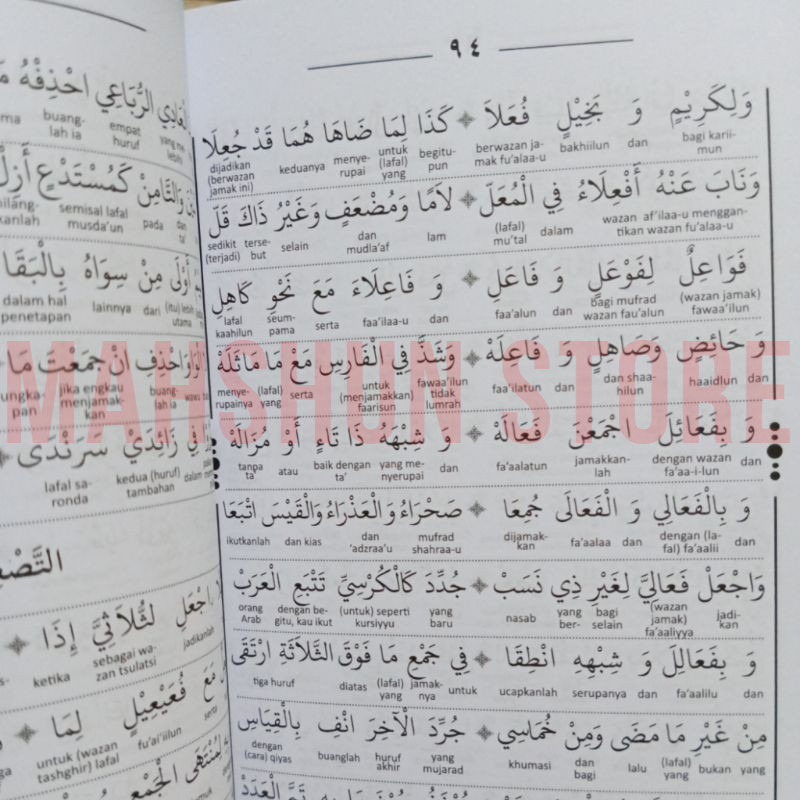 ٩٤
وَلِكَرِيْمٍ وَ بَخِيْلٍ فُعَلاَ كَذَا لِمَا ضَاهَا هُمَا قَدْ جُعِلَا
dijadikan (berwazan jamak ini) keduanya menye-rupai untuk (lafal) yang begitu-pun berwazan ja-mak fu'alaa-u bakhiilun dan bagi karii-mun
وَنَابَ عَنْهُ أَفْعِلَاءُ فِي الْمُعَلّ لَامًا وَمُضْعَفٍ وَغَيْرُ ذَاكَ قَلّ
sedikit terse-(terjadi) but selain dan mudla'af lam (lafal) mu'tal dalam wazan af'ilaa-u menggan-tikan wazan fu'alaa-u
فَوَاعِلٌ لِفَوْعَلٍ وَ فَاعَلِ وَ فَاعِلَاءَ مَعَ نَحْوِ كَاهِلِ
lafal kaahilun seum-pama serta faa'ilaa-u dan faa'alun dan bagi mufrad wazan fau'alun (wazan jamak) fawaa'ilun
وَ حَائِضٍ وَصَاهِلٍ وَ فَاعِلَهْ وَشَذَّ فِي الْفَارِسِ مَعْ مَا مَاثَلَهْ
menye-rupainya (lafal) yang serta untuk (menjamakkan) faarisun fawaa'ilun tidak lumrah faa'ilatun dan dan shaa-hilun haaidlun dan
وَ بِفَعَائِلَ اجْمَعَنْ فَعَالَهْ وَ شِبْهَهُ ذَا تَاءٍ أَوْ مُزَالَهْ
tanpa ta' atau baik dengan ta' yang me-nyerupai dan faa'alatun jamakkan-lah dengan wazan fa'aa-i-lun dan
وَ بِالْفَعَالِي وَ الْفَعَالَى جُمِعَا صَحْرَاءُ وَ الْعَذْرَاءُ وَالْقَيْسَ اتْبَعَا
ikutkanlah dan kias dan 'adzraa'u mufrad shahraa-u dijamak-kan fa'aalaa dan dengan (la-fal) fa'aalii dan
وَاجْعَلْ فَعَالِيَّ لِغَيْرِ ذِي نَسَبْ جُدِّدَ كَالْكُرْسِيِّ تَتْبَعِ الْعَرَبْ
orang Arab dengan be-gitu, kau ikut (untuk) seperti kursiyyu yang baru nasab yang ber- bagi selain (wazan jamak) fa'aaliyya jadi-kan
وَ بِفَعَالِلَ وَ شِبْهِهِ انْطِقَا فِي جَمْعِ مَا فَوْقَ الثَّلَاثَةِ ارْتَقَى
tiga huruf diatas (lafal) yang jamak-nya untuk ucapkanlah serupanya dan fa'aalilu dan
مِنْ غَيْرِ مَا مَضَى وَمِنْ خُمَاسِي جُرِّدَ الْآخِرَ انْفِ بِالْقِيَاسِ
dengan (cara) qiyas buanglah huruf akhir yang mujarad khumasi dan bagi lalu (lafal) yang bukan yang
الْعَادِي الرُّبَاعِي احْذِفْهُ
buang-lah ia empat huruf
وَالثَّامِنْ كَمُسْتَدْعٍ أَزِلْ
semisal lafal musda'un pada dan
أَوْلَى مِنْ سِوَاهُ بِالْبَقَا
dalam hal penetapan lainnya dari (itu) lebih utama
الْوَاوَ احْذِفِ انْ جَمَعْتَ مَا
jika engkau menjamak-kan buang-lah ia
فِي زَائِدَيْ سَرَنْدَى
lafal sa-ronda kedua (huruf) tambahan dalam
اجْعَلِ الثُّلَاثِيَّ إِذَا
ketika sebagai wa-zan tsulatsi jadikanlah
مَعَ فُعَيْعِيْلٍ لِمَا
untuk (wazan tashghir) lafal fu'ai'iilun serta
MAHSHUN STORE